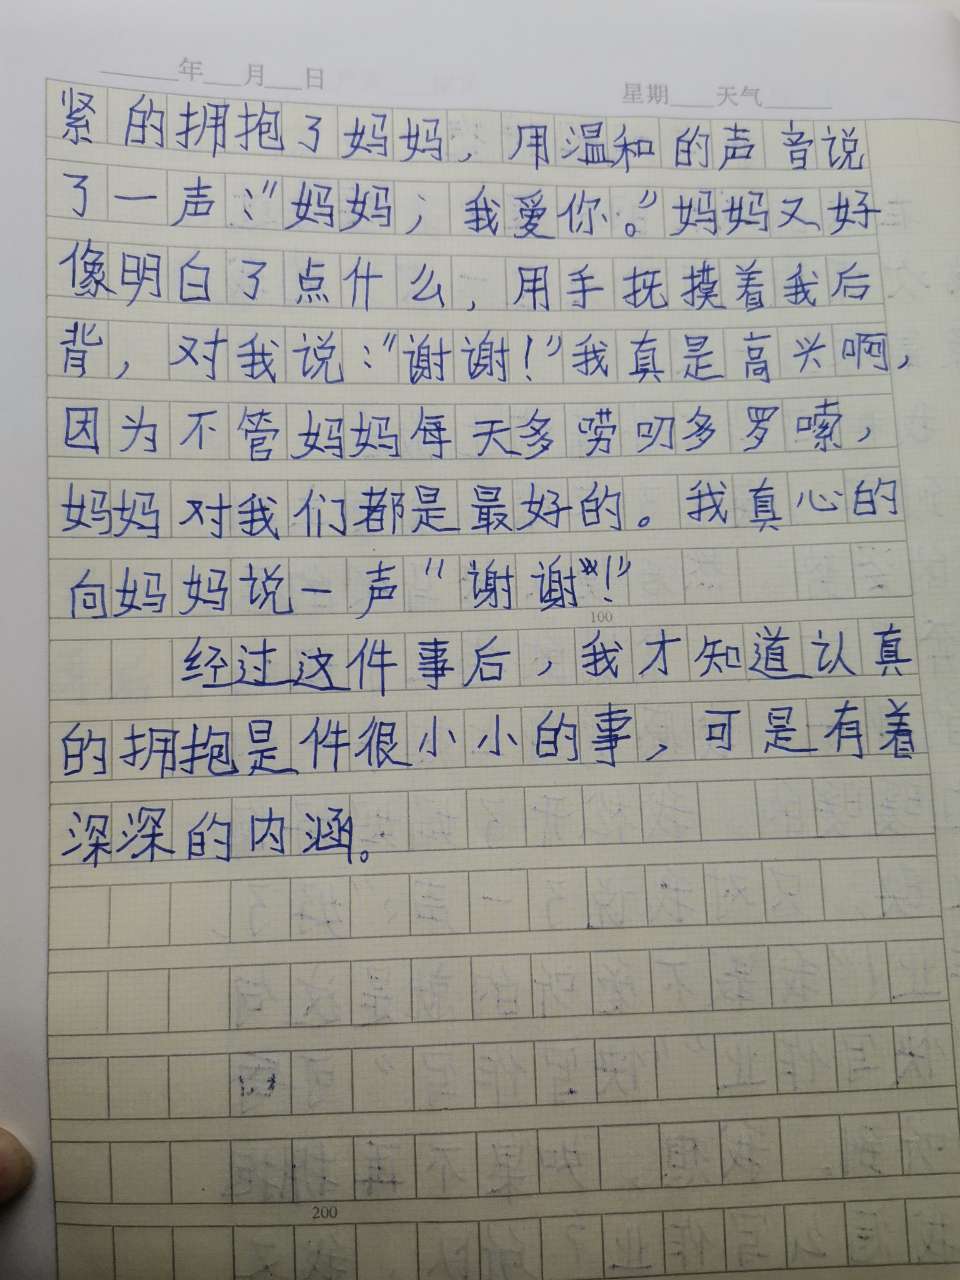 年 月 日 星期 天气
紧的拥抱了妈妈，用温和的声音说
了一声：“妈妈，我爱你。”妈妈又好
像明白了点什么，用手抚摸着我后
背，对我说：“谢谢！”我真是高兴啊，
因为不管妈妈每天多唠叨多罗嗦，
妈妈对我们都是最好的。我真心的
向妈妈说一声“谢谢”！”
100
经过这件事后，我才知道认真
的拥抱是件很小小的事，可是有着
深深的内涵。
200